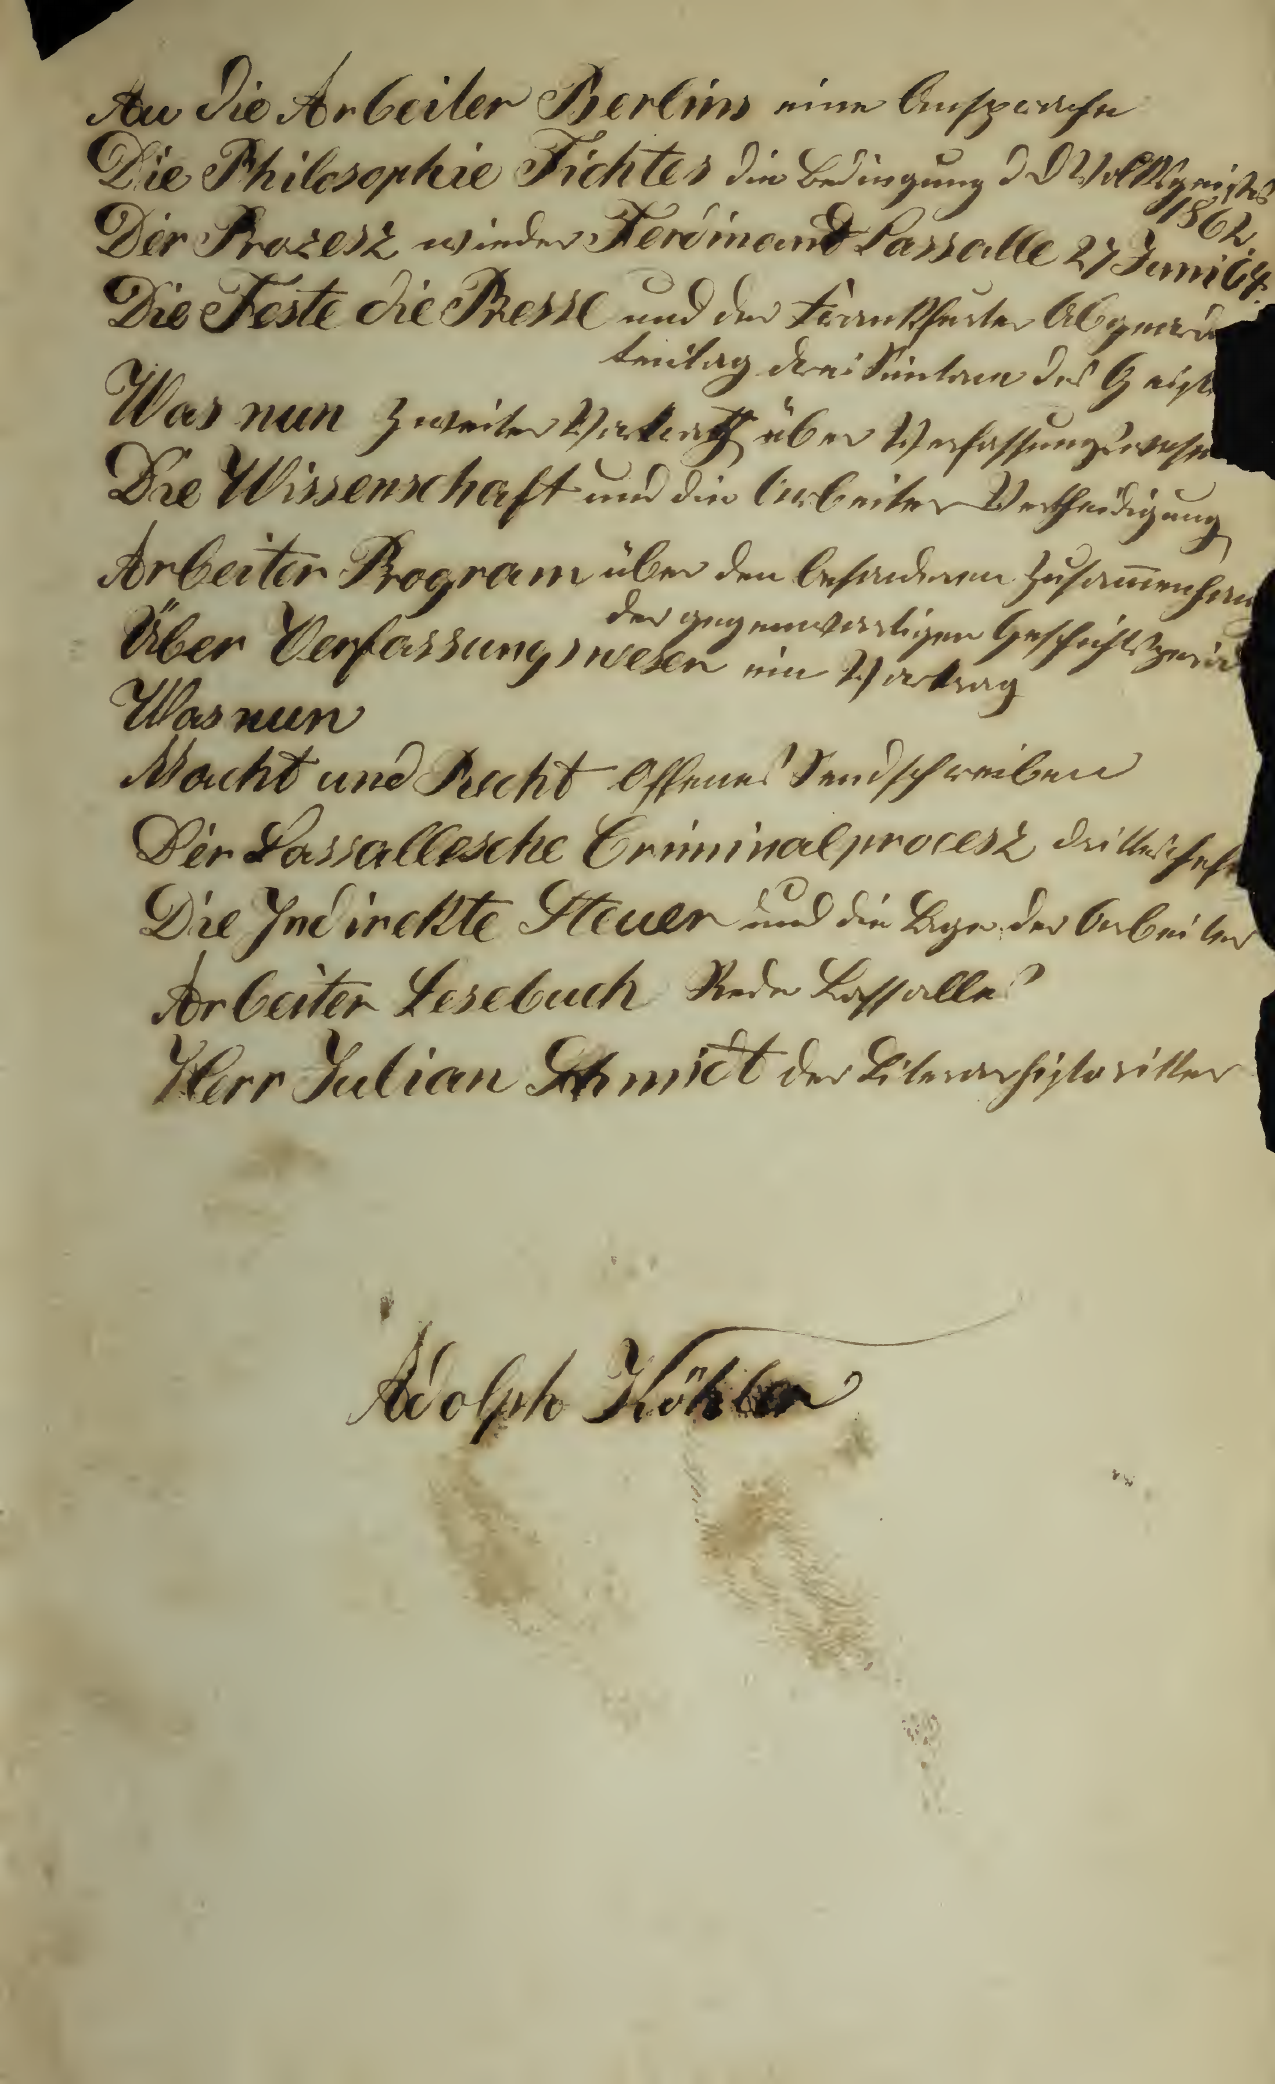 An die Arbeiter Berlins eine Ansprache
Die Philosophie Fichtes die Bedingung d d Volksgeistes
1862
Der Prozesz wieder Ferdinand Lassalle 27 Juni 64.
Die Feste die Presse und der Frankfurter Abgeord
tentag drei Simtome des Geist
Was nun Zweiter Vortrag über Verfassungswesen
Die Wissenschaft und die Arbeiter Vertheidigung
Arbeiter Program über den besonderen Zusam̄enhan
der gegenwartigen Geschichtsperio
Über Verfassungswesen ein Vortrag
Was nun
Macht und Recht Offenes Sendschreiben
Der Lassallesche Criminalprocesz drittes Heft
Die Indirekte Steuer und die Lage der Arbeiter
Arbeiter Lesebuch Rede Lassalles
Herr Julian Schmidt der Literarhistoriker
Adolph Köhler